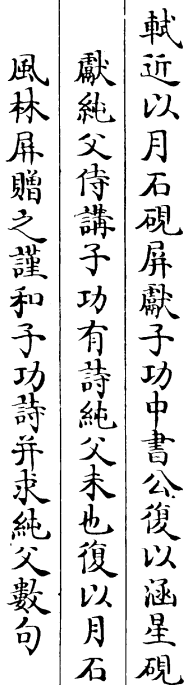 軾近以月石硯屏獻子功中書公復以涵星硯
獻純父侍講子功有詩純父未也復以月石
風林屏贈之謹和子功詩并求純父數句